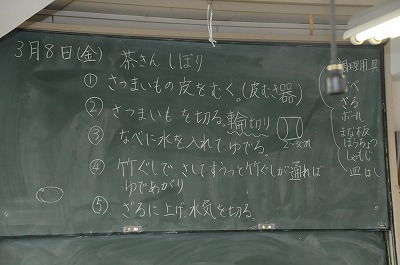 3月8日(金) 茶きんしぼり
① さつまいもの皮をむく。(皮むき器)
② さつまいもを切る。輪切り
2~3cm
③ なべに水を入れて、ゆでる。
④ 竹ぐしでさしてすうっと竹ぐしが通れば
ゆであがり
⑤ ざるに上げ、水気を切る。
調理用具
なべ
ざる
ボール
まな板
ほうちょう
しゃもじ
皿 はし